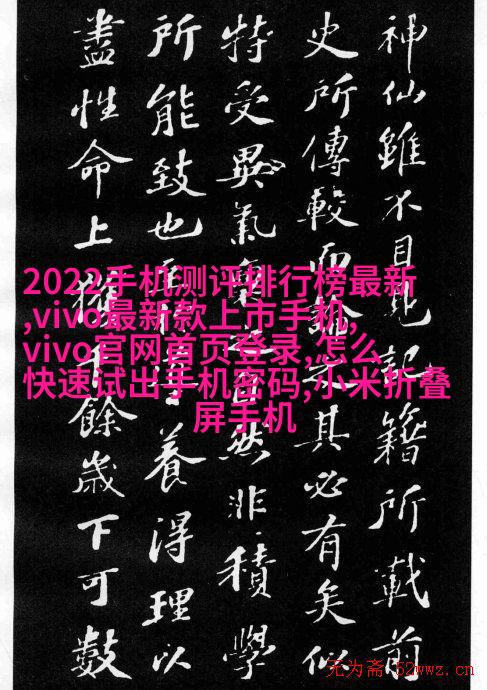 神仙雖不目見記籍所載前
史所傳較而論其必有矣似
特受異氣稟自然非積學
所能致也至養得理以
盡性命上獲千餘歲下可數
2022手机测评排行榜最新
,vivo最新款上市手机,
vivo官网首页登录,怎么
快速试出手机密码,小米折叠
屏手机
无为斋 52wwz.cn